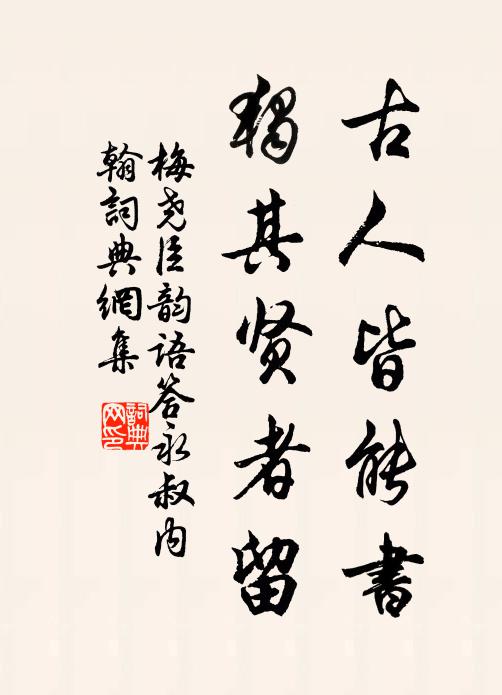 古人皆能書
獨其贤者留
梅尧臣韵語答永叔内
翰詞典網集
詞典网印